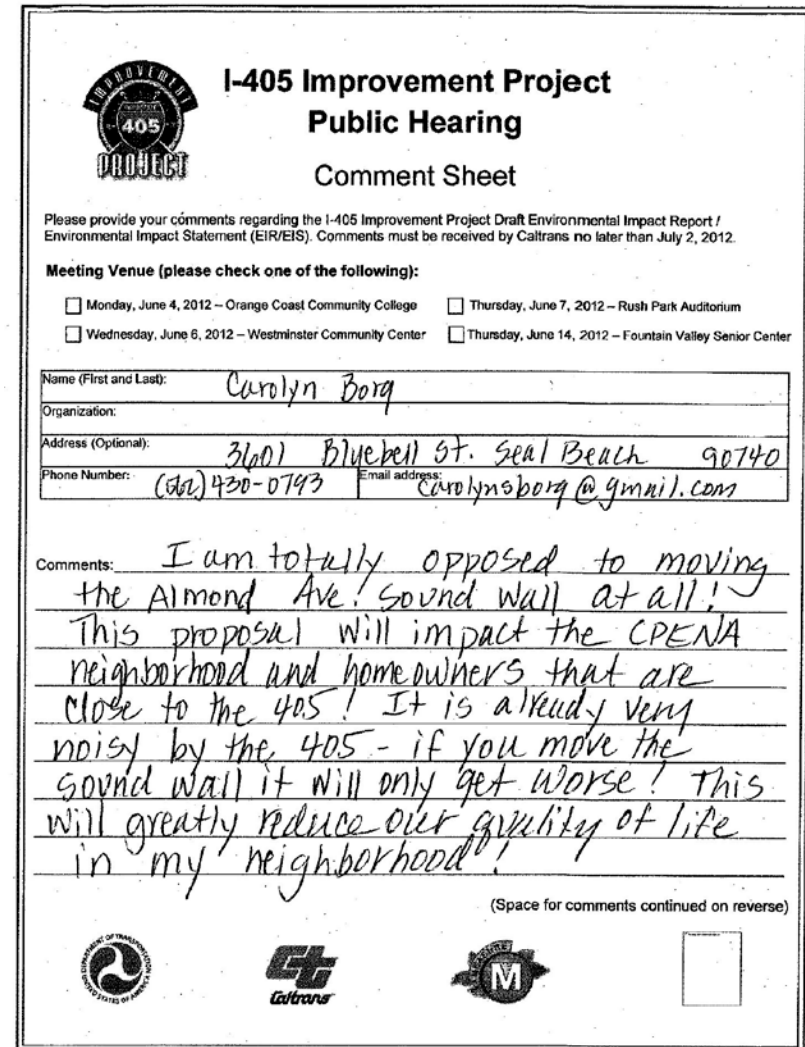 IMPROVEMENT
405
PROJECT
I-405 Improvement Project
Public Hearing
Comment Sheet
Please provide your comments regarding the I-405 Improvement Project Draft Environmental Impact Report /
Environmental Impact Statement (EIR/EIS). Comments must be received by Caltrans no later than July 2, 2012.
Meeting Venue (please check one of the following):
Monday, June 4, 2012 – Orange Coast Community College
Thursday, June 7, 2012 – Rush Park Auditorium
Wednesday, June 6, 2012 – Westminster Community Center
Thursday, June 14, 2012 – Fountain Valley Senior Center
Name (First and Last): Carolyn Borg
Organization:
Address (Optional): 3601 Bluebell St. Seal Beach 90740
Phone Number: (562) 430-0793 Email address: carolynsborg@gmail.com
Comments: I am totally opposed to moving
the Almond Ave! Sound Wall at all!
This proposal will impact the CPENA
neighborhood and homeowners that are
close to the 405! It is already very
noisy by the 405 - if you move the
sound wall it will only get worse! This
will greatly reduce our quality of life
in my neighborhood!
(Space for comments continued on reverse)
DEPARTMENT OF TRANSPORTATION
UNITED STATES OF AMERICA
Caltrans
MEASURE
M